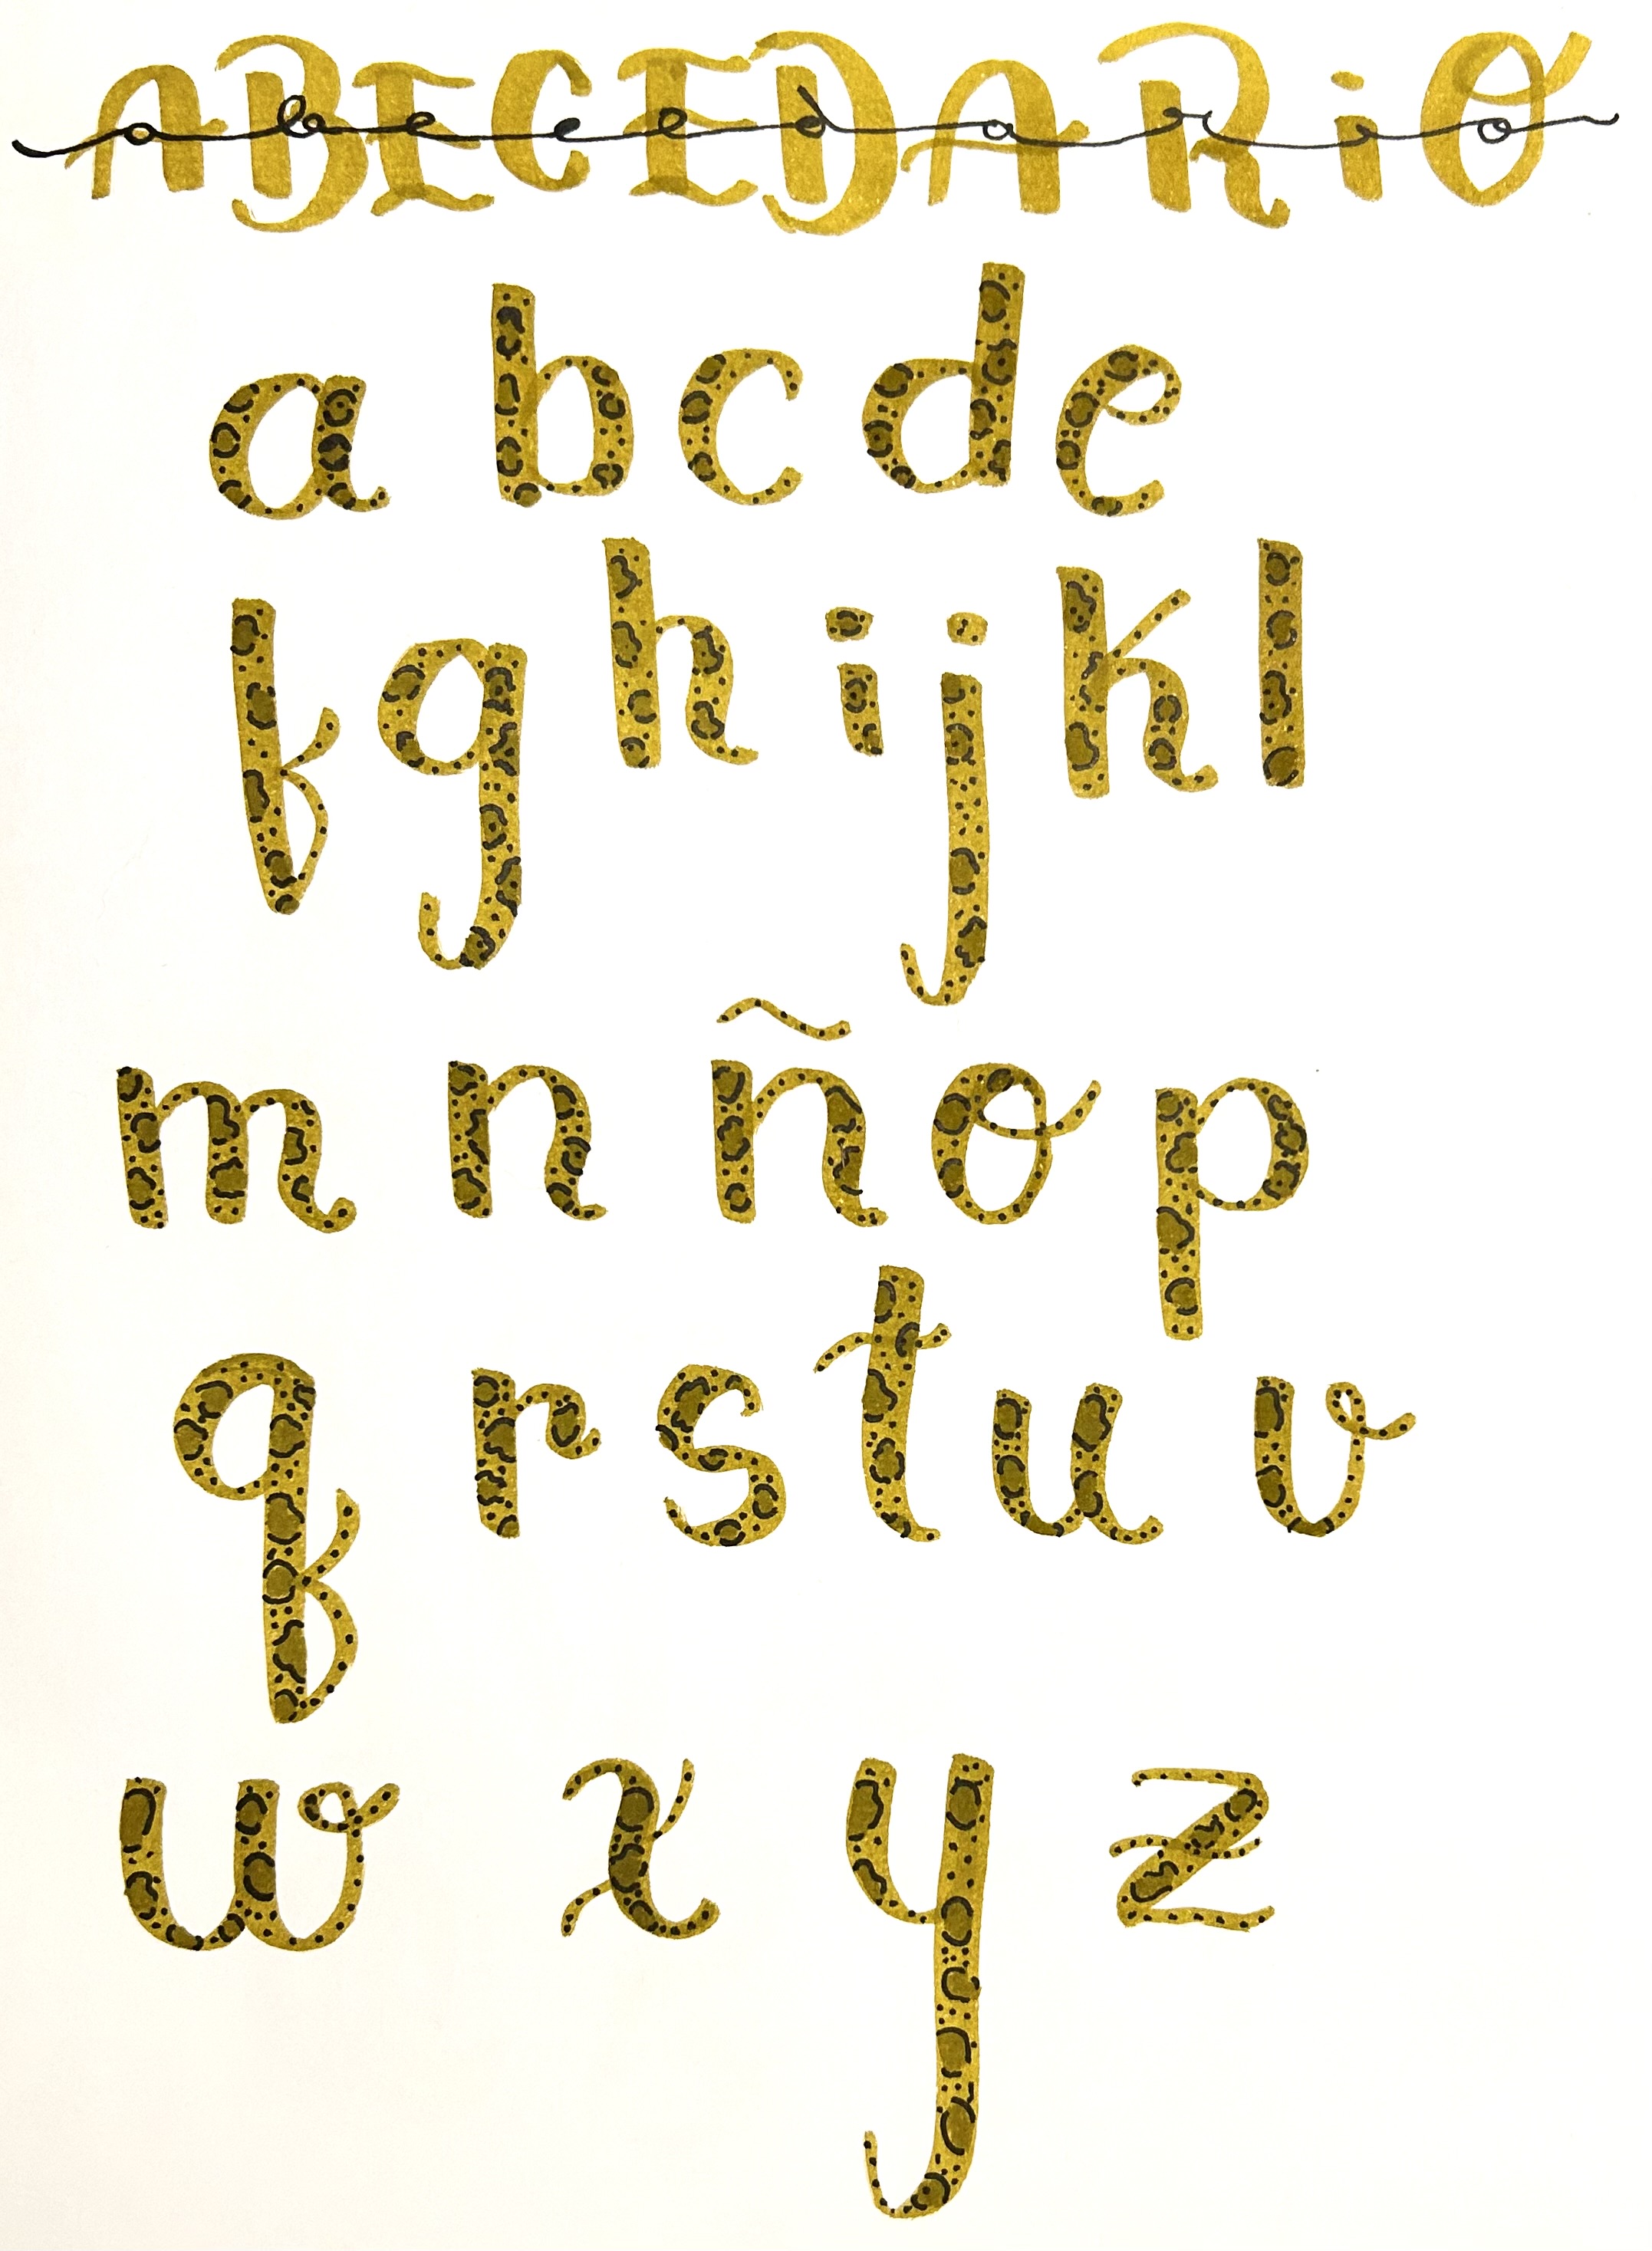 ABECEDARiO
abecedario
a b c d e
f g h i j k l
m n ñ o p
q r s t u v
w x y z